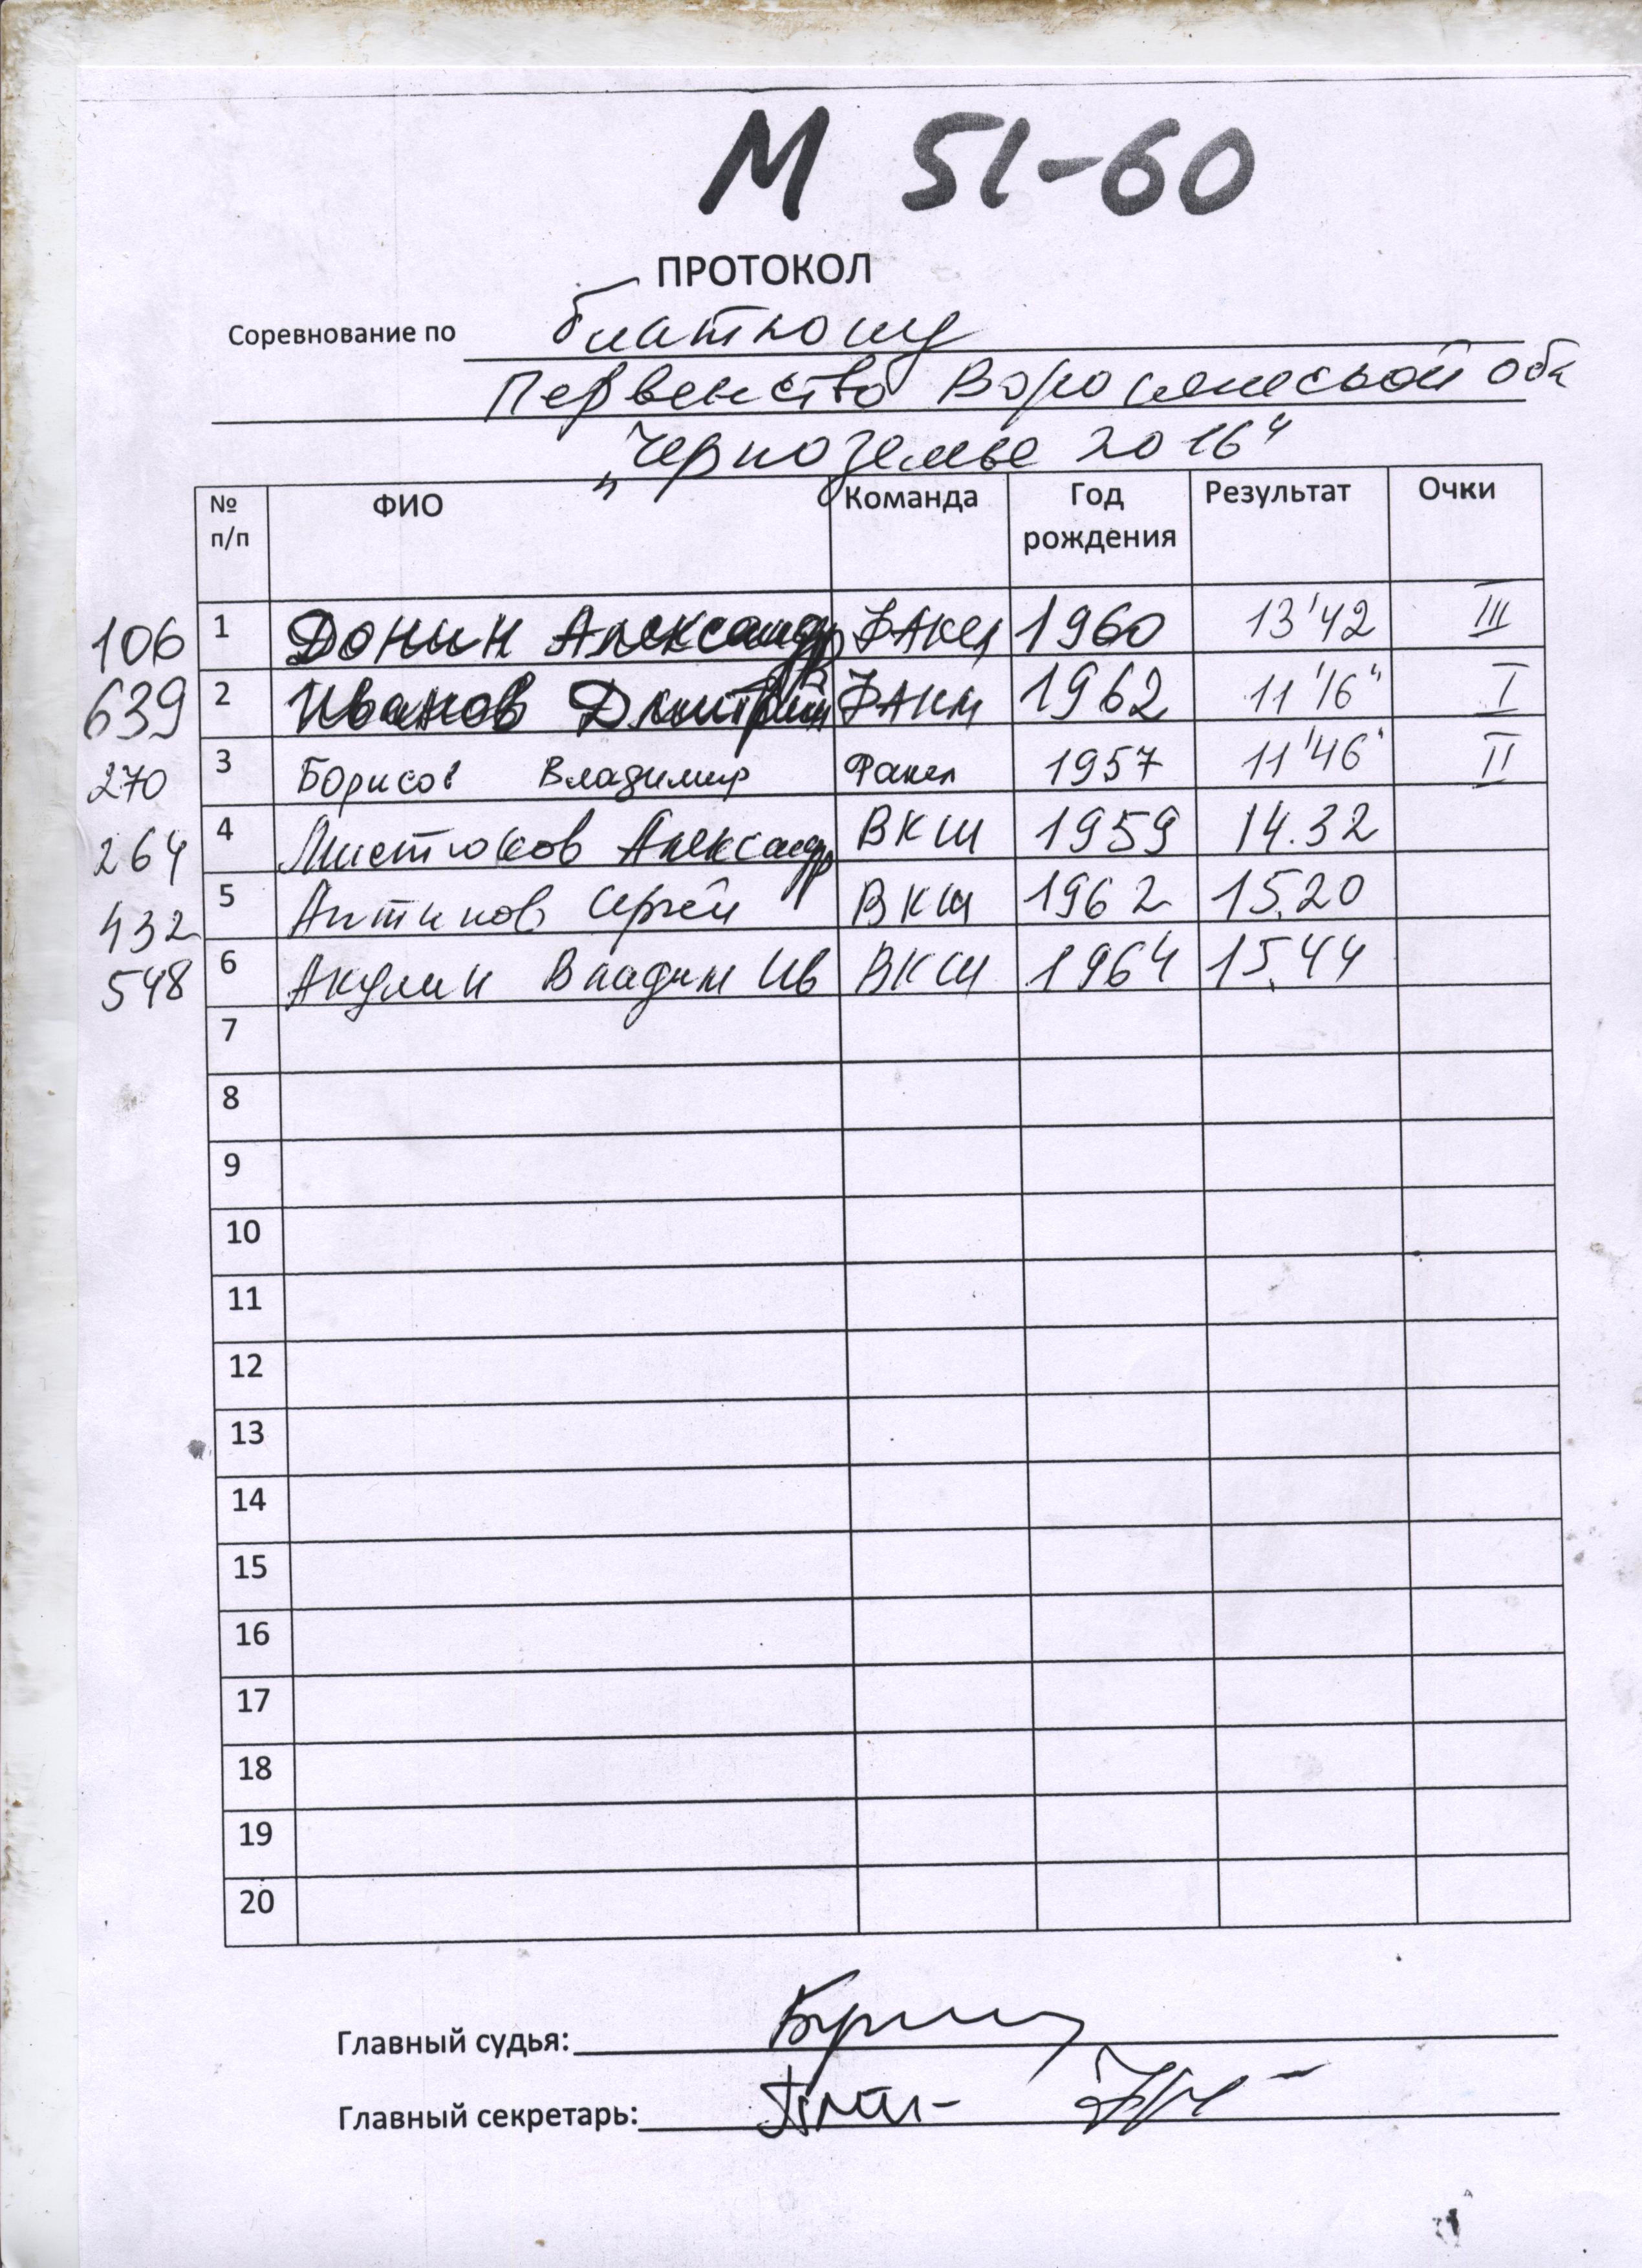 М 51-60
ПРОТОКОЛ
Соревнование по биатлону
Первенство Воронежской обл
"Черноземье 2016"
№ п/п ФИО Команда Год рождения Результат Очки
106 1 Донин Александр ФАкел 1960 13'42 III
639 2 Иванов Дмитрий ФАкел 1962 11'16" I
270 3 Борисов Владимир Факел 1957 11'46" II
264 4 Листюков Александр ВКШ 1959 14.32
432 5 Антипов Сергей ВКШ 1962 15.20
548 6 Акулин Владим Ив ВКШ 1964 15.44
7
8
9
10
11
12
13
14
15
16
17
18
19
20
Главный судья:
Главный секретарь: